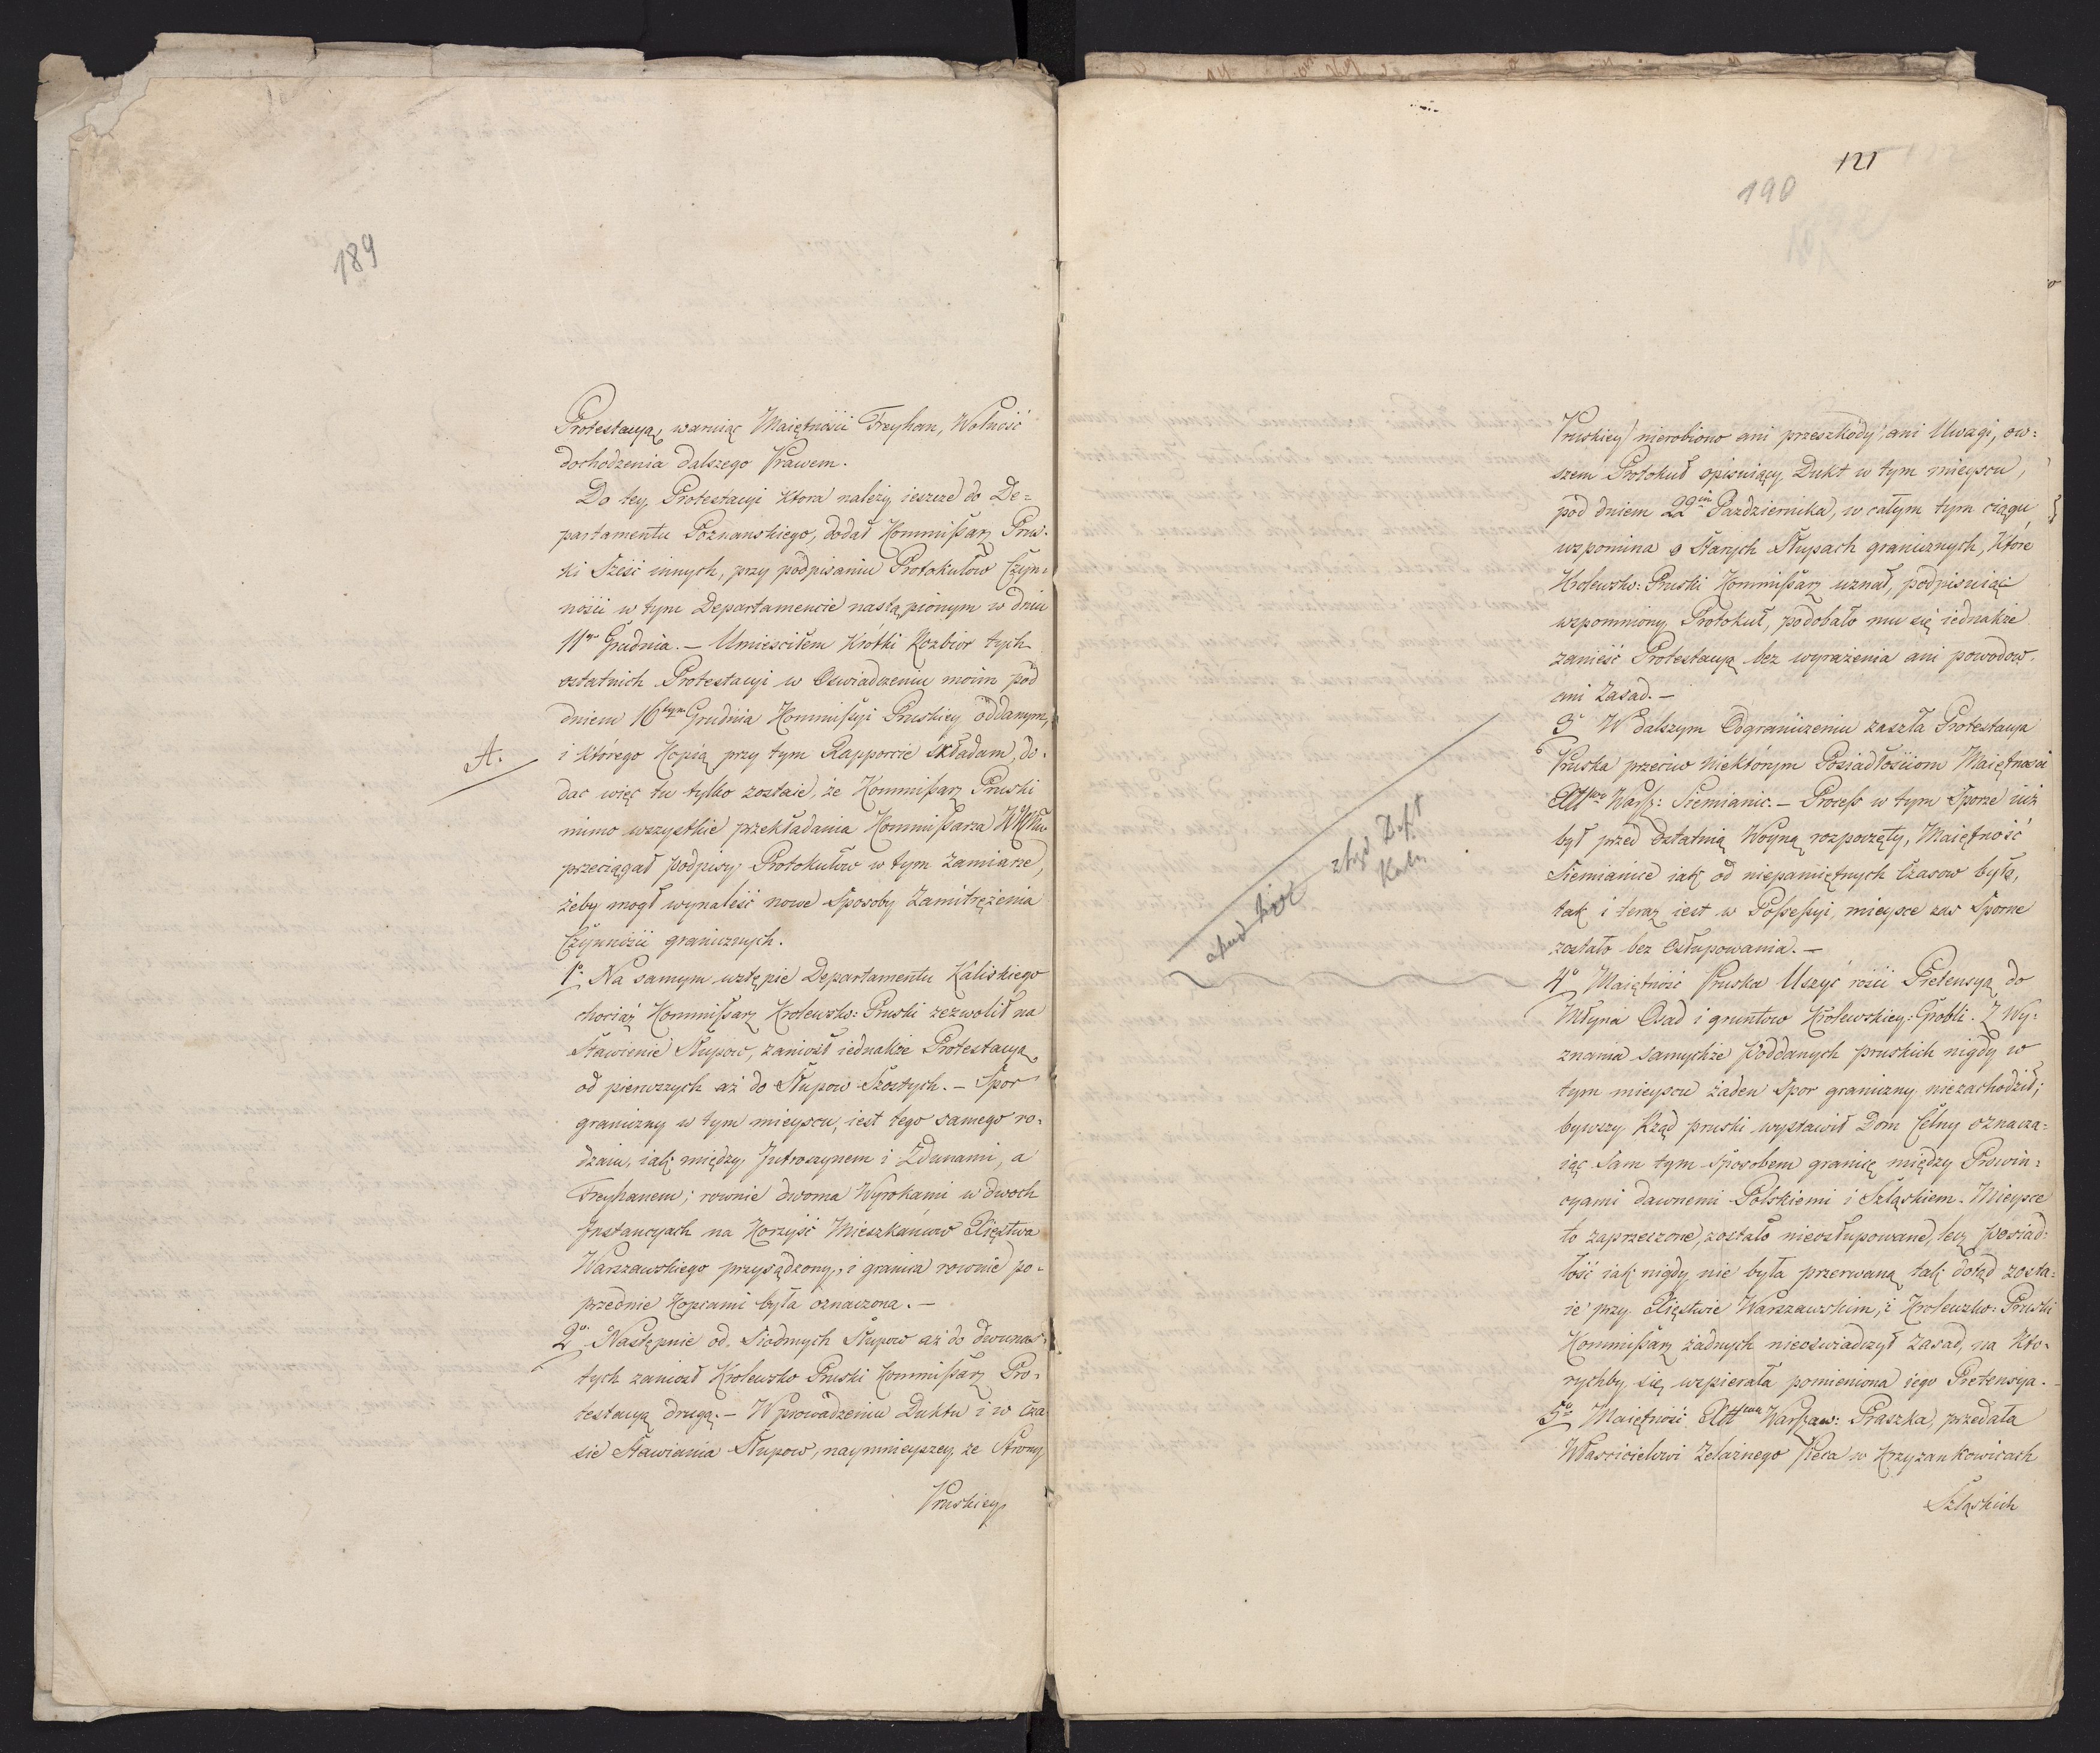 189
Protestacyą, waruiąc Maiętności Freyhan, Wolność
dochodzenia dalszego Prawem.
Do tey, Protestacyi ktora należy ieszcze do De=
partamentu Poznanskiego, dodał Kommißarz Prus-
ki Sześć innych, przy podpisaniu Protokułow Czyn=
ności w tym Departamencie nastąpionym w dniu
11go Grudnia. — Umieściłem Krótki Rozbior tych
ostatnich Protestacyi w Oswiadczeniu moim pod
dniem 16tym Grudnia Kommißyi Pruskiey oddanym,
A.
i którego Kopią przy tym Rapporcie składam, do-
dac więc tu tylko zostaie, że Kommißarz Pruski
mimo wszystkie przekładania Kommißarza
przeciągał podpisy Protokułow w tym zamiarze,
żeby mogł wynaleść nowe Sposoby Zamitrężenia
Czynności granicznych.
1o Na samym wstępie Departamentu Kaliskiego
chociaż Kommißarz Krolewsko: Pruski zezwolił na
Stawienie Słupow, zaniosł iednakże Protestacyą
od pierwszych aż do Słupow Szostych. — Spor
graniczny w tym mieyscu, iest tego samego ro-
dzaiu, iak między Jutroszynem i Zdunami, a
Freyhanem; rownie dwoma Wyrokami w dwoch
Instancyach na Korzyść Mieszkańcow Xięstwa
Warszawskiego przysądzony, i granica rownie po-
przednie Kopcami była oznaczona. —
2o Następnie od Siodmych Słupow aż do dwunas-
tych zaniosł Krolewsko Pruski Kommißarz Pro-
testacyą drugą. — W prowadzeniu Duktu i w cza
sie Stawiania Słupow, naymnieyszey ze Strony
Pruskiey
121
190
Pruskiey nierobiono ani przeszkody, ani Uwagi, ow=
szem Protokuł opisuiący Dukt w tym mieyscu,
pod dniem 22im Pazdziernika, w całym tym ciągu
wspomina o Starych Słupach granicznych, które
Krolewsko: Pruski Kommißarz uznał, podpisuiąc
wspomniony Protokuł, podobało mu się iednakże
zanieść Protestacyą bez wyrażenia ani powodow,
ani Zasad. —
3o W dalszym Odgraniczeniu zaszła Protestacya
Pruska przeciw niektórym Posiadłościom Maiętności
Warß: Siemianic. — Proceß w tym Sporze iuż
był przed Ostatnią Woyną rozpoczęty, Maiętność
Siemianice iak od niepamiętnych Czasow była,
tak i teraz iest w Poßeßyi, mieysce zas Sporne
zostało bez Osłupowania. —
4o Maiętność Pruska Uszyc rości Pretensyą do
Młyna Osad i gruntow Krolewskiey: Grobli. Z Wy=
znania samychże Poddanych pruskich nigdy w
tym mieyscu żaden Spor graniczny niezachodził;
bywszy Rząd pruski wystawił Dom Celny oznacza=
iąc Sam tym Sposobem granicę między Prowin=
cyami dawnemi Polskiemi i Szląskiem. Mieysce
to zaprzeczone, zostało nieosłupowane, lecz posiad=
łość iak nigdy nie była przerwaną tak dotąd zosta=
ie przy Xięstwie Warszawskim, i Krolewsko: Pruski
Kommißarz żadnych nieoświadczył Zasad, na kto-
rychby się wspierała pomieniona iego Pretensya. —
5o Maiętność Warßaw: Praszka, przedała
Właścicielowi Żelaznego Pieca w Krzyzankowicach
Szląskich